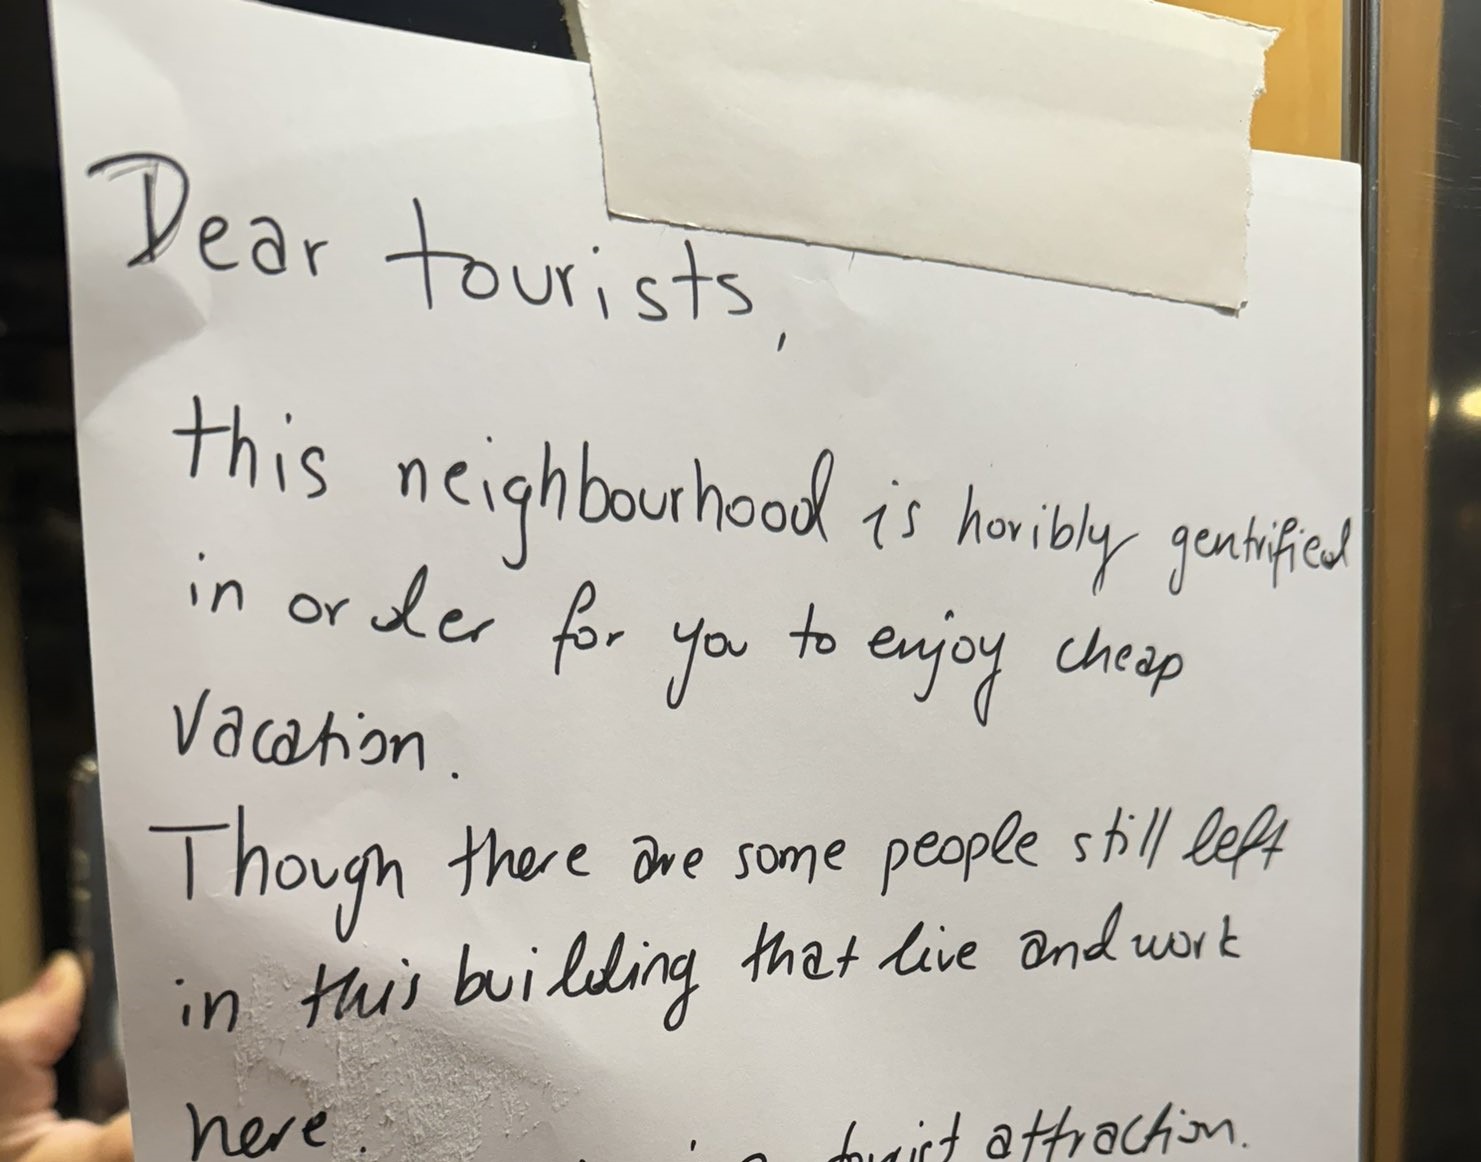 Dear tourists,
this neighbourhood is horibly gentrified
in order for you to enjoy cheap
vacation.
Though there are some people still left
in this building that live and work
here.
tourist attraction.